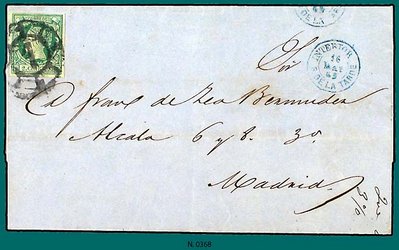 INTERIOR
16
MAY
DE LA TARDE
DE LA
Sr
D franco de Zea Bermudez
Alcala 6 y 8. 3o.
Madrid.
N. 0368